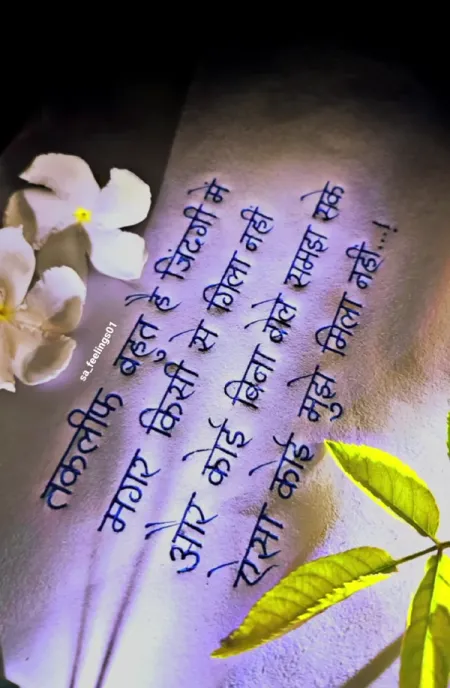 तकलीफ बहुत है जिंदगी में
मगर किसी से गिला नहीं
और कोई बिना बोले समझा सके
ऐसा कोई मुझे मिला नही...!
sa_feelings01